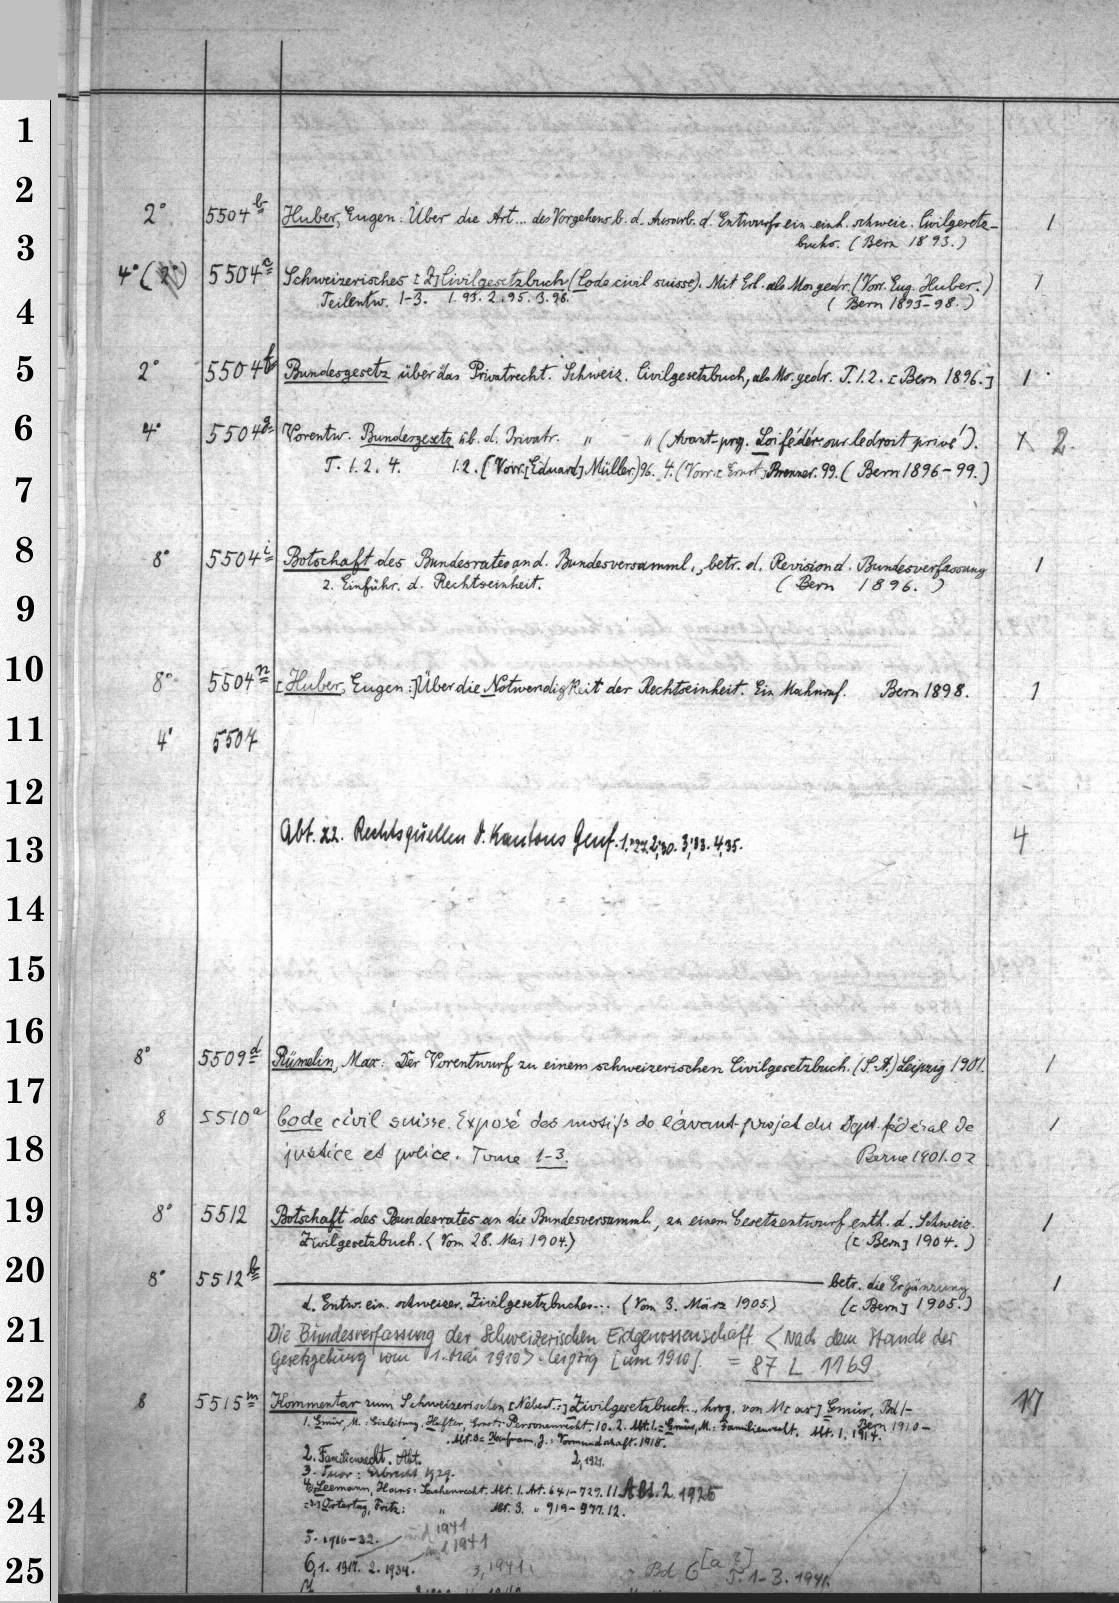 1
2
2° 5504 b Huber, Eugen: Über die Art... des Vorgehens b. d. Ausarb. d. Entwurfs ein. einh. schweiz. Civilgesetz-
buchs. (Bern 1893.)
3
4° (2°) 5504 e Schweizerisches [Z]Civilgesetzbuch (Code civil suisse). Mit Erl. als Ms. gedr. (Vorr. Eug. Huber.) 1
Teilentw. 1-3. 1. 93. 2. 95. 3. 98. (Bern 1893-98.)
4
5
2° 5504 f Bundesgesetz über das Privatrecht. Schweiz. Civilgesetzbuch, als Ms. gedr. T. 1.2. [Bern 1896.] 1
6
4° 5504 g Vorentw. Bundesgesetz üb. d. Privatr. " - " (Avant-proj. Loi fédér. sur le droit privé). 2.
T. 1. 2. 4. 1.2. (Vorr. [Eduard] Müller.) 96. 4. (Vorr. [Ernst] Brenner. 99. (Bern 1896-99.)
7
8
8° 5504 i Botschaft des Bundesrates an d. Bundesversamml., betr. d. Revision d. Bundesverfassung 1
z. Einführ. d. Rechtseinheit. (Bern 1896.)
9
10
8° 5504 n [Huber, Eugen:] Über die Notwendigkeit der Rechtseinheit. Ein Mahnruf. Bern 1898. 1
11
4° 5507
12
13
Abt. 22. Rechtsquellen d. Kantons Genf. 1.'27. 2,'30. 3,'33. 4,'35. 4
14
15
16
8° 5509 d Rümelin, Max: Der Vorentwurf zu einem schweizerischen Civilgesetzbuch. (S.A.) Leipzig 1901. 1
17
8 5510 a Code civil suisse. Exposé des motifs de l'avant-projet du Dept. fédéral de 1
18
justice et police. Tome 1-3. Berne 1901.02
19
8° 5512 Botschaft des Bundesrates an die Bundesversamml., zu einem Gesetzentwurf enth. d. Schweiz. 1
Zivilgesetzbuch. <Vom 28. Mai 1904.> ([Bern] 1904.)
20
8° 5512 b betr. die Ergänzung 1
d. Entw. ein. schweizer. Zivilgesetzbuches... <Vom 3. März 1905.> ([Bern] 1905.)
21
Die Bundesverfassung der Schweizerischen Eidgenossenschaft <Nach dem Stande der
Gesetzgebung vom 1. Mai 1910>. Leipzig [um 1910]. = 87 L 1169
22
8 5515 m Kommentar zum Schweizerischen [Nebent.:] Zivilgesetzbuch.., hrsg. von M[ax] Gmür, Bd 1- 17
Bern 1910-
1. Gmür, M.: Einleitung, Hafter, Ernst: Personenrecht. 10. 2. Abt. 1. = Gmür, M.: Familienrecht. Abt. 1. 1914.
Abt. 3 = Kaufmann, J.: Vormundschaft. 1918.
23
2. Familienrecht. Abt. 2, 1921.
3. Tuor: Erbrecht 1929.
4. Leemann, Hans: Sachenrecht. Abt. 1. Art. 641-729. 11 Abt. 2. 1925
24
Ostertag, Fritz: " Abt. 3. " 919-977. 12.
5. 1916-32. und 1941
und 1941
25
6, 1. 1917. 2. 1934. 3, 1941. Bd 6 [a 2] T. 1-3. 1941.